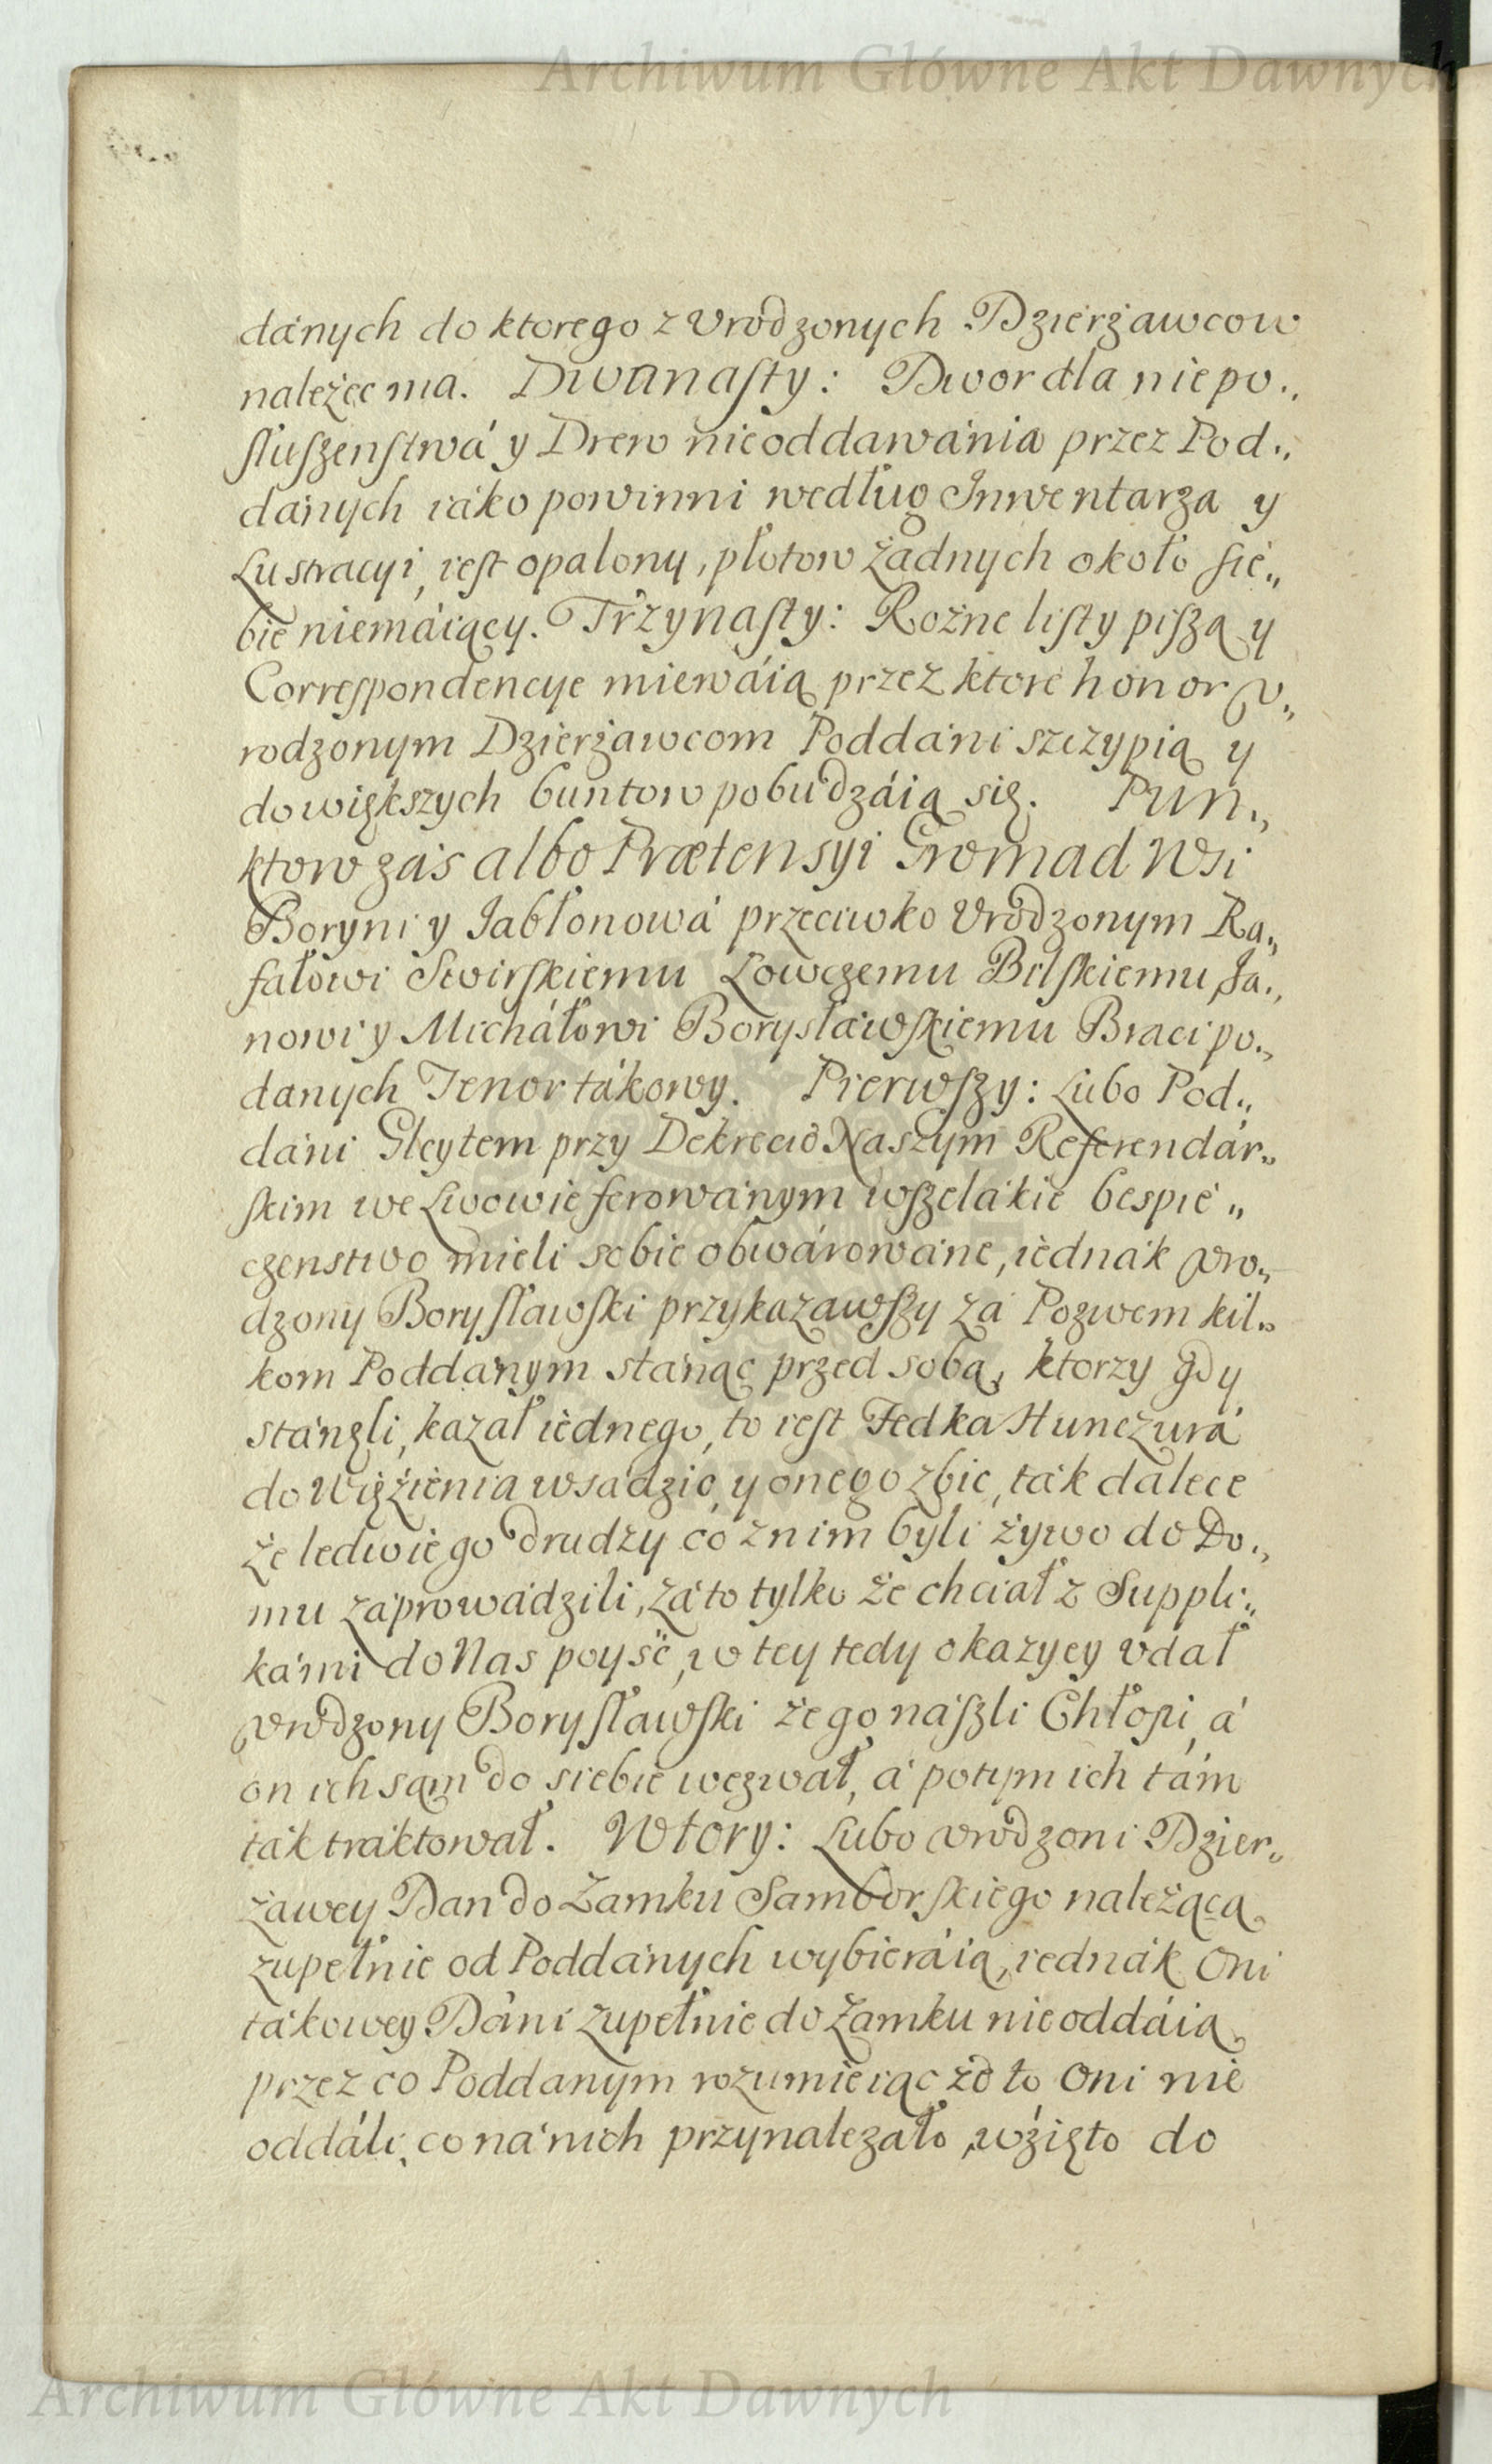 Archiwum Główne Akt Dawnych
dánych do ktorego z Vrodzonych Dzierżawcow
należec ma. Dwunasty: Dwor dla niepo„
słuszenstwá y Drew nieoddawánia przez Pod„
dánych iáko powinni według Inwentarza y
Lustracyi, iest opalony, płotow żadnych około sie„
bie niemáiący. Trzynasty: Rożne listy piszą y
Correspondencye miewáią przez ktore honor V„
rodzonym Dzierżawcom Poddáni szczypią y
do większych buntow pobudzáią się. Pun„
ktow záś albo Prætensyi Gromad Wsi
Boryni y Jabłonowá przeciwko Vrodzonym Ra„
fałowi Swirskiemu Łowczemu Bilskiemu Ja„
nowi y Micháłowi Borysłáwskiemu Braci po„
danych Tenor tákowy. Pierwszy: Lubo Pod„
dáni Gleytem przy Dekrecie Naszym Referendár„
skim we Lwowie ferowánym wszelákie bespie„
czenstwo mieli sobie obwárowáne, iednák Vro„
dzony Borysławski przykazawszy zá Pozwem kil„
kom Poddánym stánąc przed sobą, ktorzy gdy
stánęli, kazał iednego, to iest Fedka Hunczurá
do Więźienia wsádzić, y onego zbic, ták dalece
że ledwie go drudzy co z nim byli żywo do Do„
mu záprowádzili, zá to tylko że chciał z Suppli„
kámi do Nas poyść, w tey tedy okazyey vdał
Vrodzony Borysławski że go nászli Chłopi, á
on ich sąm do siebie wezwał, á potym ich tám
ták tráktował. Wtory: Lubo Vrodzoni Dzier„
żawcy Dan do Zamku Samborskiego należącą
zupełnie od Poddánych wybieráią, iednák Oni
tákowey Dáni zupełnie do Zamku nieoddáią
przez co Poddanym rozumieiąc że to Oni nie
oddáli, co ná nich przynalezało, wźięto do
Archiwum Główne Akt Dawnych